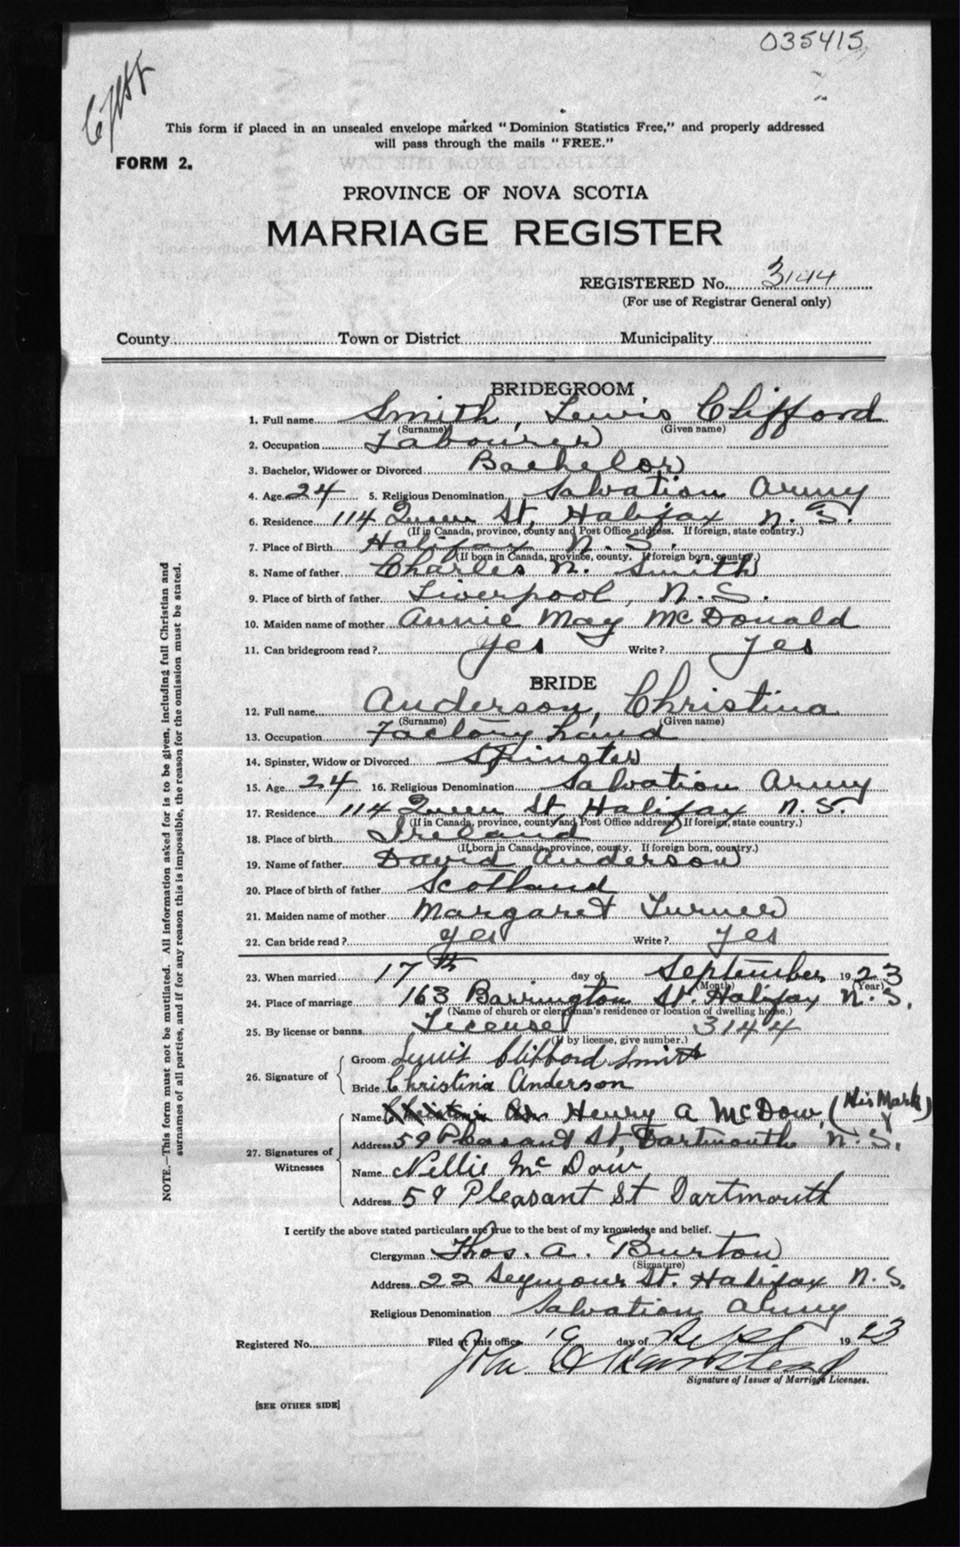 035415
This form if placed in an unsealed envelope marked "Dominion Statistics Free," and properly addressed
will pass through the mails "FREE."
FORM 2.
PROVINCE OF NOVA SCOTIA
MARRIAGE REGISTER
REGISTERED No. 3144
(For use of Registrar General only)
County Town or District Municipality
BRIDEGROOM
1. Full name Smith, Lewis Clifford
(Surname) (Given name)
2. Occupation Labourer
3. Bachelor, Widower or Divorced Bachelor
4. Age 24 5. Religious Denomination Salvation Army
6. Residence 114 Queen St, Halifax N. S.
(If in Canada, province, county and Post Office address. If foreign, state country.)
7. Place of Birth Halifax N. S.
(If born in Canada, province, county. If foreign born, country.)
8. Name of father Charles N. Smith
9. Place of birth of father Liverpool, N. S.
10. Maiden name of mother Annie May McDonald
11. Can bridegroom read? Yes Write? Yes
BRIDE
12. Full name Anderson, Christina
(Surname) (Given name)
13. Occupation Factory hand
14. Spinster, Widow or Divorced Spinster
15. Age 24 16. Religious Denomination Salvation Army
17. Residence 114 Queen St, Halifax N. S.
(If in Canada, province, county and Post Office address. If foreign, state country.)
18. Place of birth Ireland
(If born in Canada, province, county. If foreign born, country.)
19. Name of father David Anderson
20. Place of birth of father Scotland
21. Maiden name of mother Margaret Turner
22. Can bride read? yes Write? yes
23. When married 17th day of September 1923
(Month) (Year)
24. Place of marriage 163 Barrington St. Halifax N. S.
(Name of church or clergyman's residence or location of dwelling house.)
25. By license or banns License 3144
(If by license, give number.)
26. Signature of
Groom Lewis Clifford Smith
Bride Christina Anderson
27. Signatures of Witnesses
Name Henry A McDow (His Mark) X
Address 59 Pleasant St, Dartmouth N. S.
Name Nellie McDow
Address 59 Pleasant St Dartmouth
I certify the above stated particulars are true to the best of my knowledge and belief.
Clergyman Thos. A. Burton
(Signature)
Address 22 Seymour St. Halifax N. S.
Religious Denomination Salvation Army
Registered No. Filed at this office 19 day of Sept 1923
John
Signature of Issuer of Marriage Licenses.
[SEE OTHER SIDE]
NOTE.—This form must not be mutilated. All information asked for is to be given, including full Christian and
surnames of all parties, and if for any reason this is impossible, the reason for the omission must be stated.